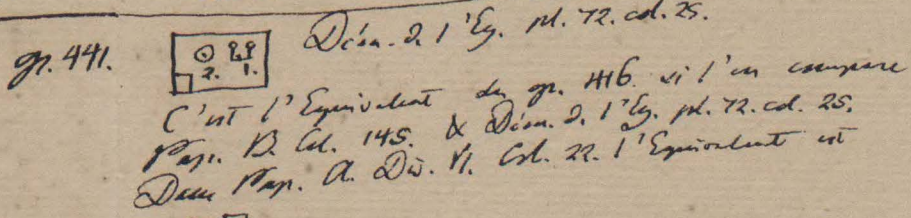 gr. 441. 2. 1. Déscr. d. l'Eg. pl. 72. col. 25.
C'est l'Equivalent du gr. 416. si l'on compare
Pap. B. Col. 145. & Déscr. d. l'Eg. pl. 72. col. 25.
Dans Pap. A. Div. VI. Col. 22. l'Equivalent est